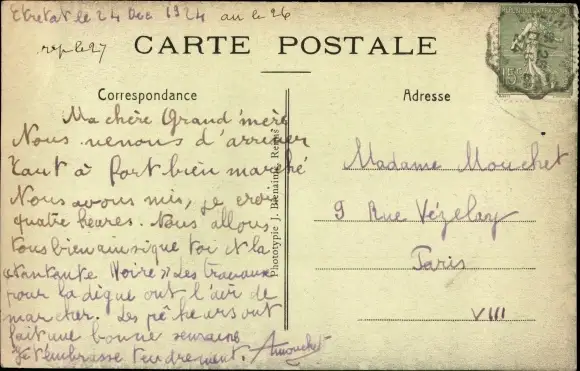 Etretat le 24 Dec 1924 au le 26
rep le 27
CARTE POSTALE
Correspondance
Adresse
Ma chère Grand'mère
Nous venons d'arriver
tant à fort bien marché
Nous avons mis, je crois
quatre heures. Nous allons
tous bien ainsi que toi et la
Noire » Les travaux
pour la digue ont l'air de
marcher. Les pêcheurs ont
fait une bonne semaine
Je t'embrasse tendrement. AMouchet
Phototypie J. Bienaimé, Reims
Madame Mouchet
9 Rue Vézelay
Paris
VIII